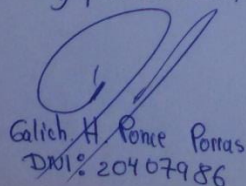 Galich H. Ponce Porras
DNI: 20407986